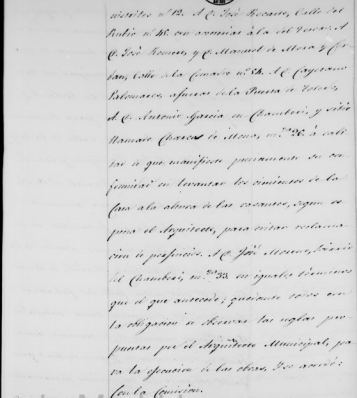 nº 12. A D. José Calle del
Rubio nº 45. con á la del A
D. José Romero, y D. Manuel de Mora y
Calle de la nº 24. A D. Cayetano
Palomares, afueras de la Puerta de Toledo,
A D. Antonio Garcia en Chamberi, y sitio
llamado Charcas de Mena, nº 26. á cali-
dad de que manifieste previamente su con-
formidad en levantar los cimientos de la
Casa á la altura de las rasantes, segun se
pone el Arquitecto, para evitar reclama-
cion de perjuicios. A D. José Moreno, Barrio
del Chamberi, nº 33. en iguales terminos
que el que antecede; quedando todos con
la obligacion de observar las reglas pro-
puestas por el Arquitecto Municipal, pa-
ra la ejecucion de las obras. Y se acordó:
Con la Comision.